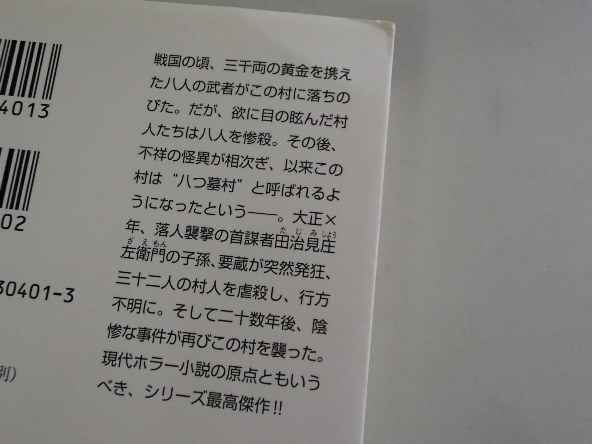 戦国の頃、三千両の黄金を携え
た八人の武者がこの村に落ちの
びた。だが、欲に目の眩んだ村
人たちは八人を惨殺。その後、
不祥の怪異が相次ぎ、以来この
村は“八つ墓村”と呼ばれるよ
うになったという――。大正×
年、落人襲撃の首謀者田治見庄
左衛門の子孫、要蔵が突然発狂、
三十二人の村人を虐殺し、行方
不明に。そして二十数年後、陰
惨な事件が再びこの村を襲った。
現代ホラー小説の原点ともいう
べき、シリーズ最高傑作!!
たじみしよう
ざえもん
4013
02
30401-3
別)